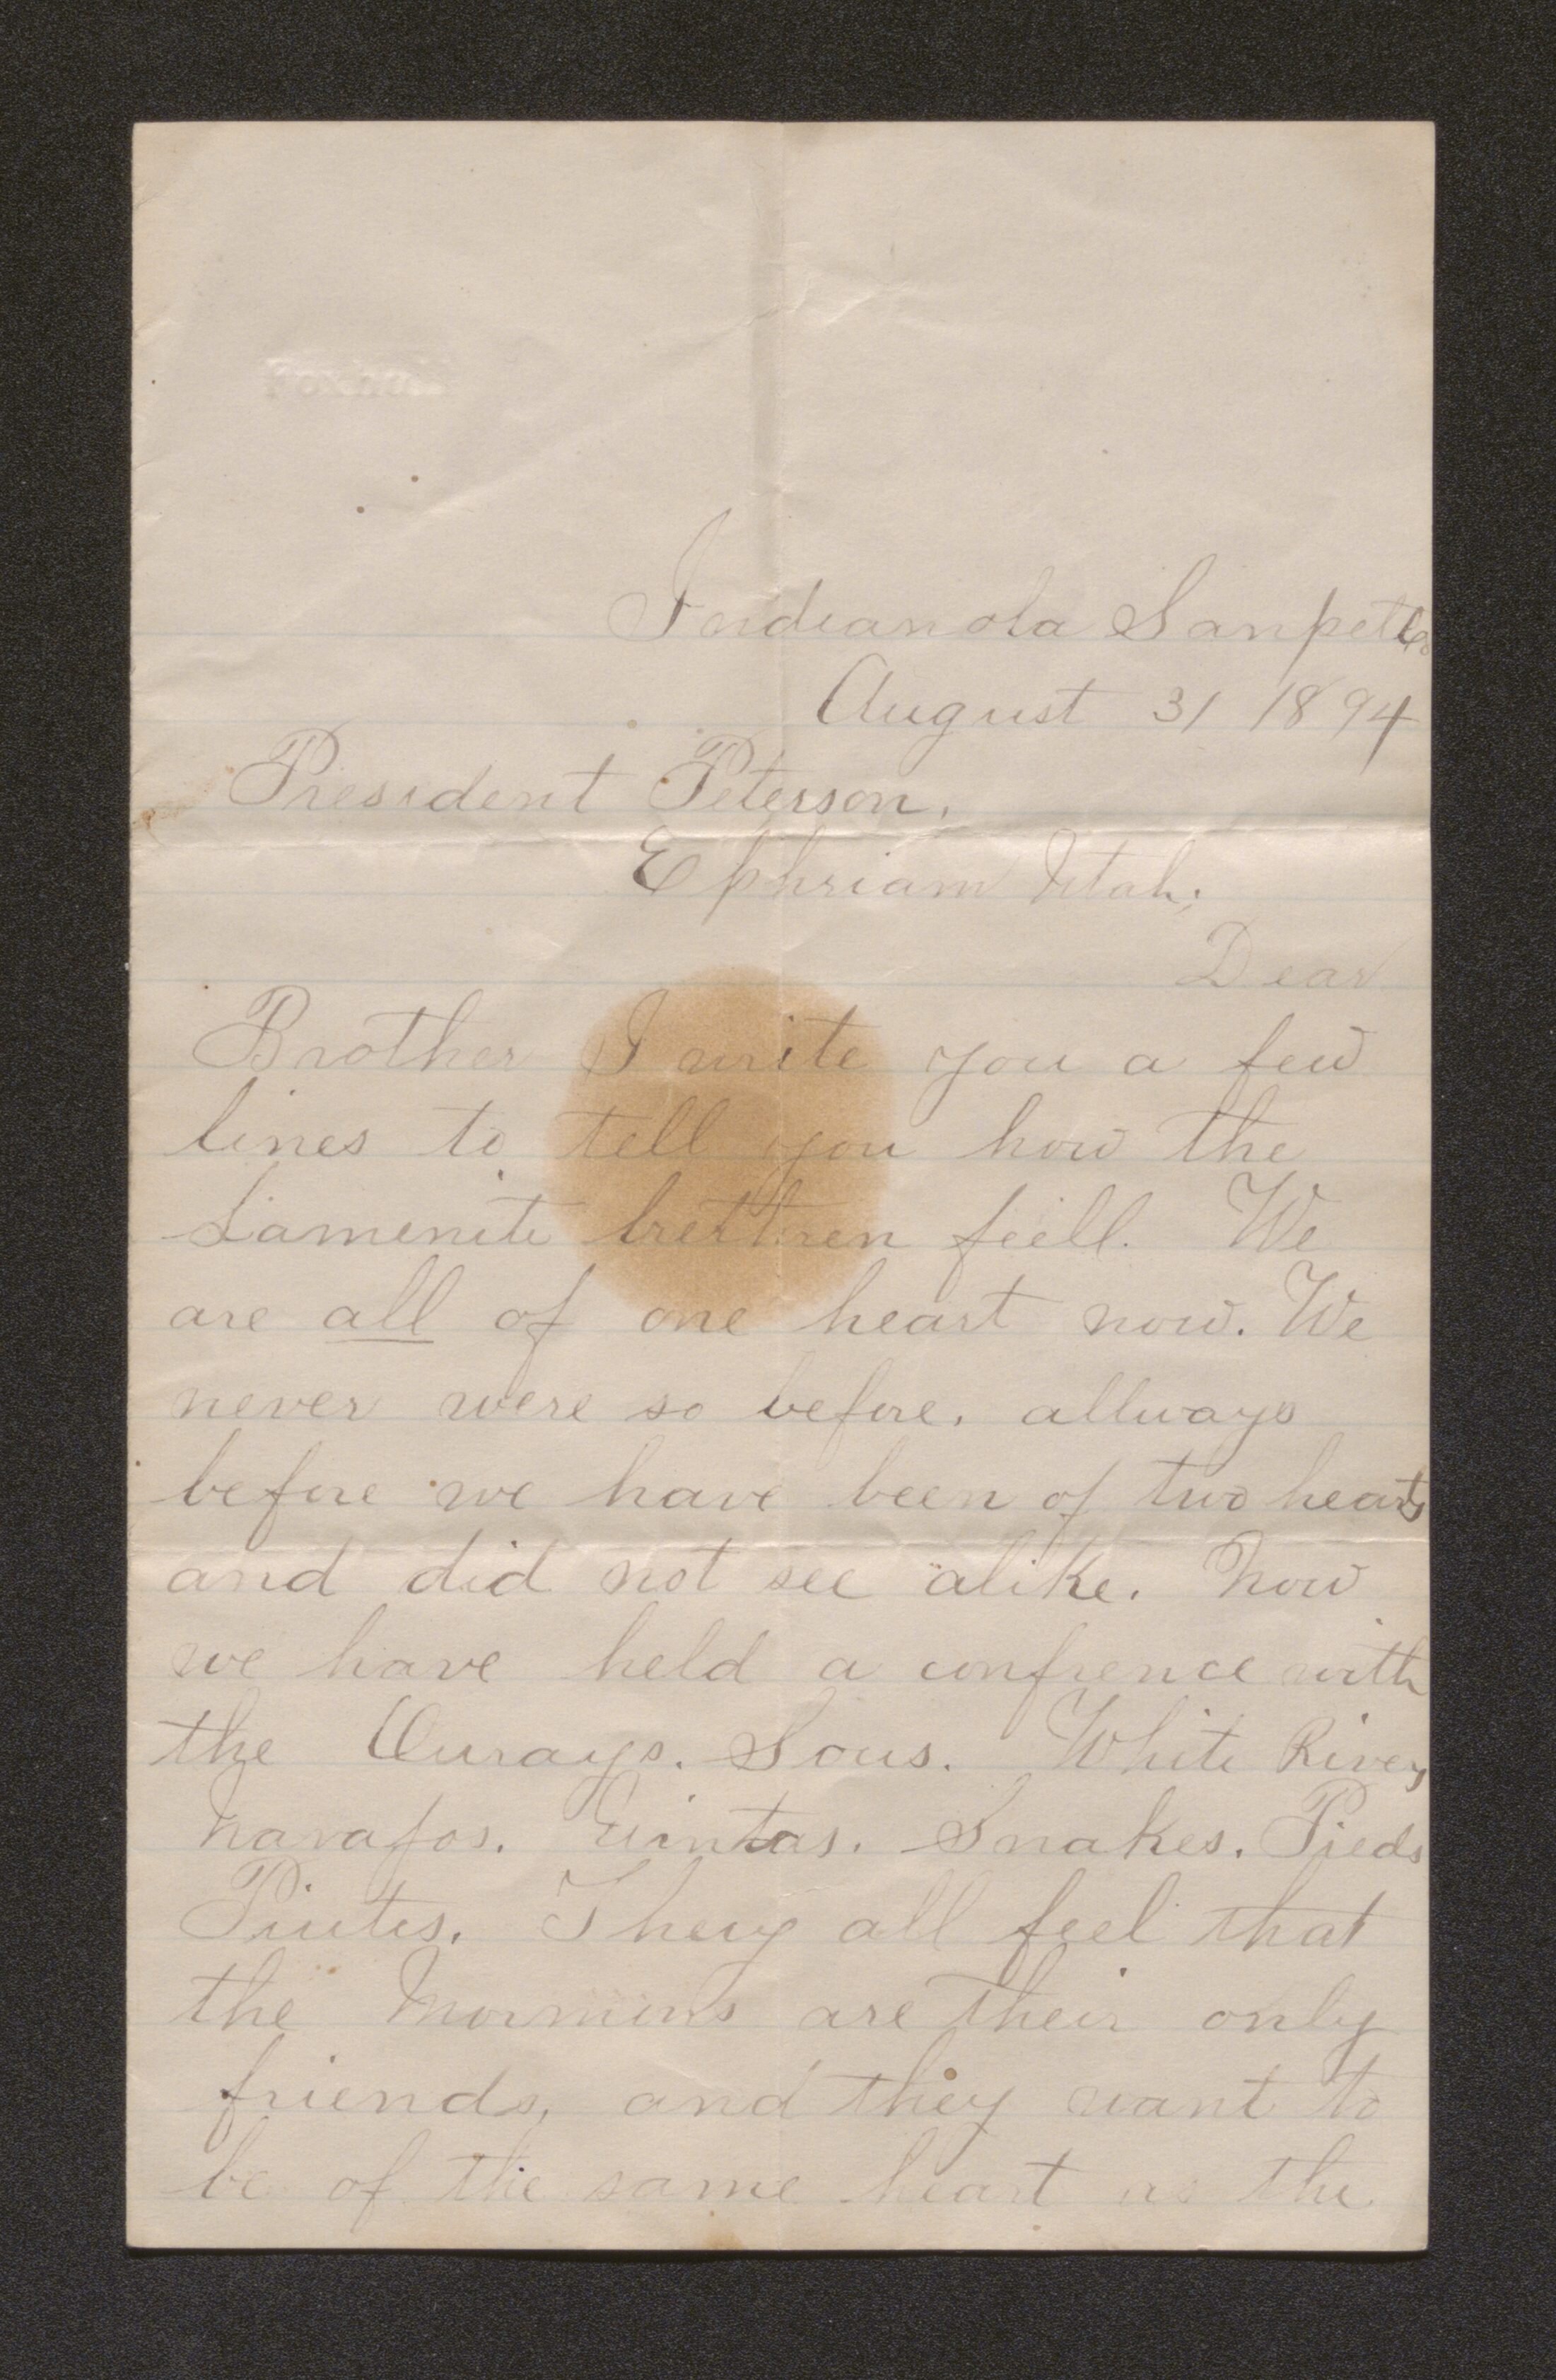 Indianola Sanpete Co
August 31 1894
President Peterson,
Ephriam Utah;
Dear
Brother I write you a few
lines to tell you how the
Lamenite brethren feell. We
are all of one heart now. We
never were so before. allways
before we have been of two hearts
and did not see alike. Now
we have held a confrence with
the Ourays. Sous. White River,
Navajos. Uintas. Snakes. Pieds
Piutes. They all feel that
the Mormins are their only
friends, and they want to
be of the same heart as the